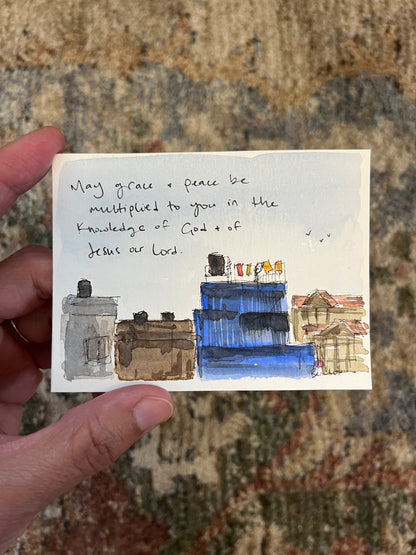 May grace + peace be
multiplied to you in the
Knowledge of God + of
Jesus our Lord.